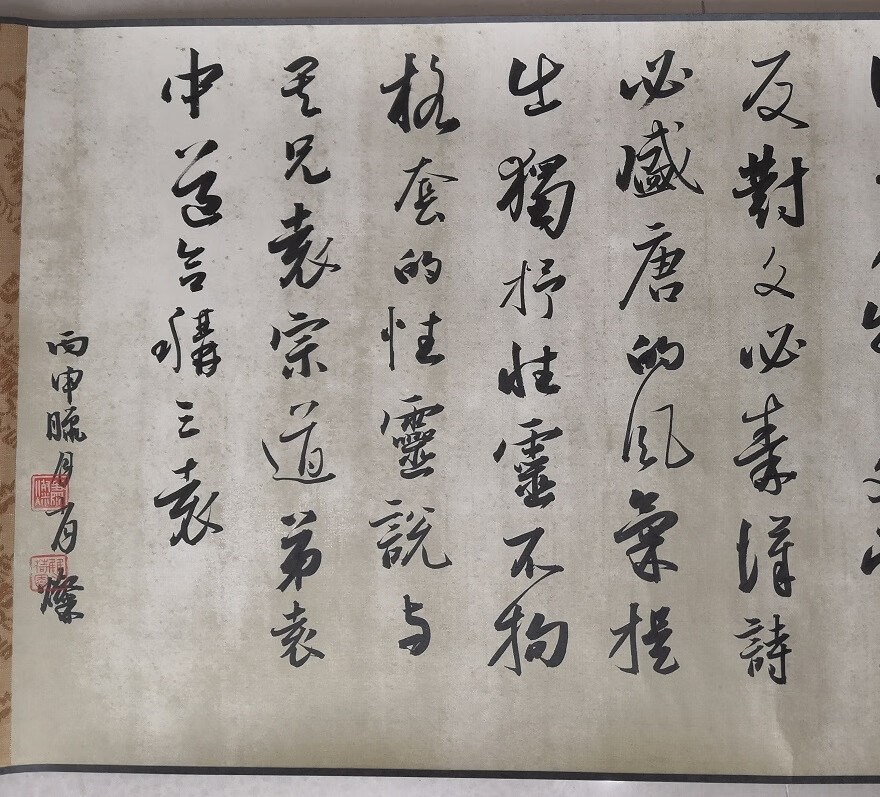 反對文必秦漢詩
必盛唐的風氣提
出獨抒性靈不拘
格套的性靈說与
其兄袁宗道弟袁
中道合稱三袁
丙申臘月肖燦